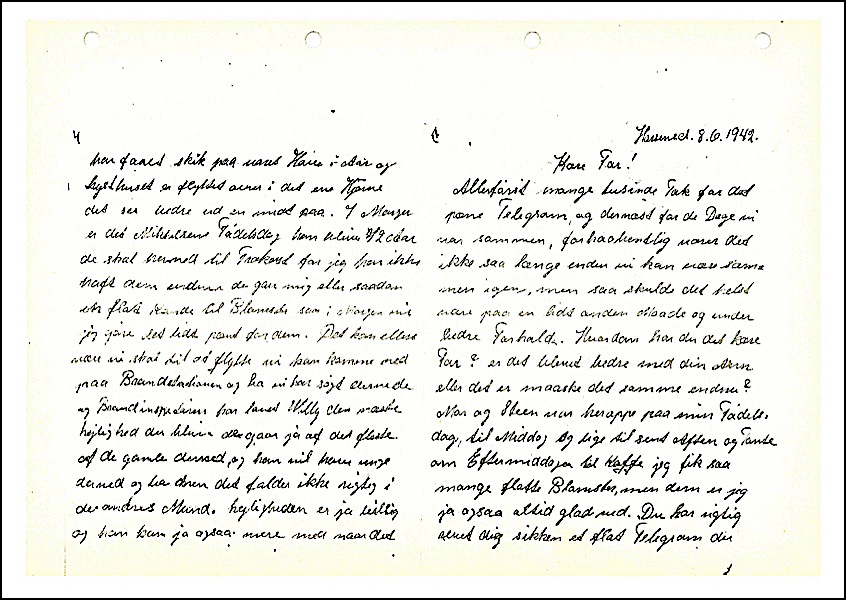 4
har faaet skik paa vores Have i Aar og
Lysthuset er flyttet over i det ene Hjørne
det ser bedre ud en midt paa. I Morgen
er det Fødelsdag han bliver 42 Aar
de skal herned til Frokost for jeg har ikke
haft dem endnu de gav mig eller saadan
en flot Blomster som i Morgen vil
jeg gøre det lidt pænt for dem. Det kan ellers
være vi skal til at flytte vi kan komme ned
paa Brandstationen og ha vi har søgt dernede
og Brandinspektøren har lovet Willy den næste
lejlighed der bliver der gaar jo af det fleste
af de gamle derned, og han vil have unge
derned og ha dren det falder ikke rigtig i
de andres Mund. lejligheden er jo billig
og han kan jo ogsaa være med naar det
1
8.6.1942.
Kære Far!
Allerførst mange tusinde Tak for det
pæne Telegram, og dernæst for de Dage vi
var sammen, forhaabentlig varer det
ikke saa længe inden vi kan være sam-
men igen, men saa skulde det helst
være paa en lidt anden Maade og under
bedre Forhold. Hvordan har du det kære
Far? er det blevet bedre med din Arm
eller det er maaske det samme endnu?
Mor og Steen var heroppe paa min Fødels-
dag, til Middag og lige til sent Aften og Tante
om Eftermiddagen til Kaffe jeg fik saa
mange flotte Blomster, men dem er jeg
jo ogsaa altid glad ved. Du har rigtig
dig sikken et flot Telegram du
1